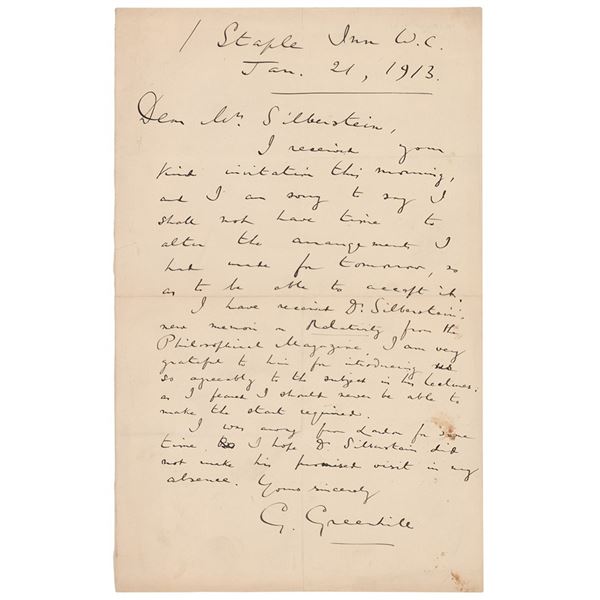 1 Staple Inn W.C.
Jan. 21, 1913.
Dear Mrs. Silberstein,
I received your
kind invitation this morning,
and I am sorry to say I
shall not have time to
alter the arrangements I
had made for tomorrow, so
as to be able to accept it.
I have received Dr. Silberstein's
new memoir on Relativity from the
Philosophical Magazine. I am very
grateful to him for introducing me
so agreeably to the subject in his Lectures;
as I feared I should never be able to
make the start required.
I was away from London for some
time. So I hope Dr. Silberstein did
not make his promised visit in my
absence. Yours sincerely
G. Greenhill